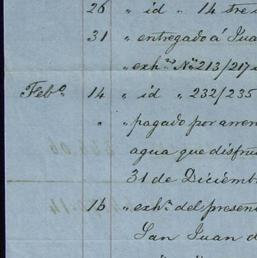 26 " id " 14 tre
31 " entregado á Jua
" exh.nes Nos 213/217 i
Feb.o 14 " id " 232/235
" " pagado por arren
agua que disfru
31 de Diciemb
16 " exh.n del presen
San Juan d